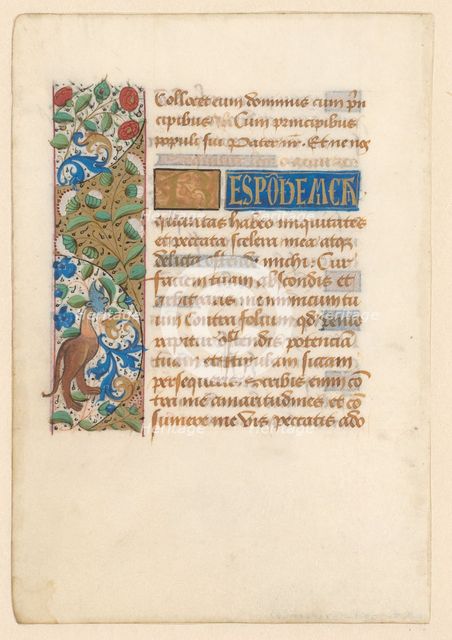 Collocet eum dominus cum prin
cipibus Cum principibus
populi sui Pater nr. Et ne nos
ESPŌDE MICH
quantas habeo iniquitates
et peccata scelera mea atq
delicta ostende michi: Cur
faciem tuam abscondis et
arbitraris me inimicum tu
um Contra folium qd vento
rapitur ostendis potenciā
tuam et stipulam siccam
persequeris Scribis enim cō
tra me amaritudines et cō
sumere me vis peccatis ado